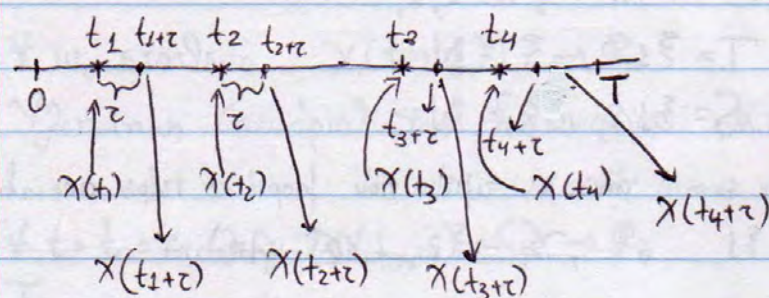 t1 t1+τ t2 t2+τ t3 t4
0 τ τ t3+τ t4+τ T
X(t1) X(t2) X(t3) X(t4) X(t4+τ)
X(t1+τ) X(t2+τ) X(t3+τ)